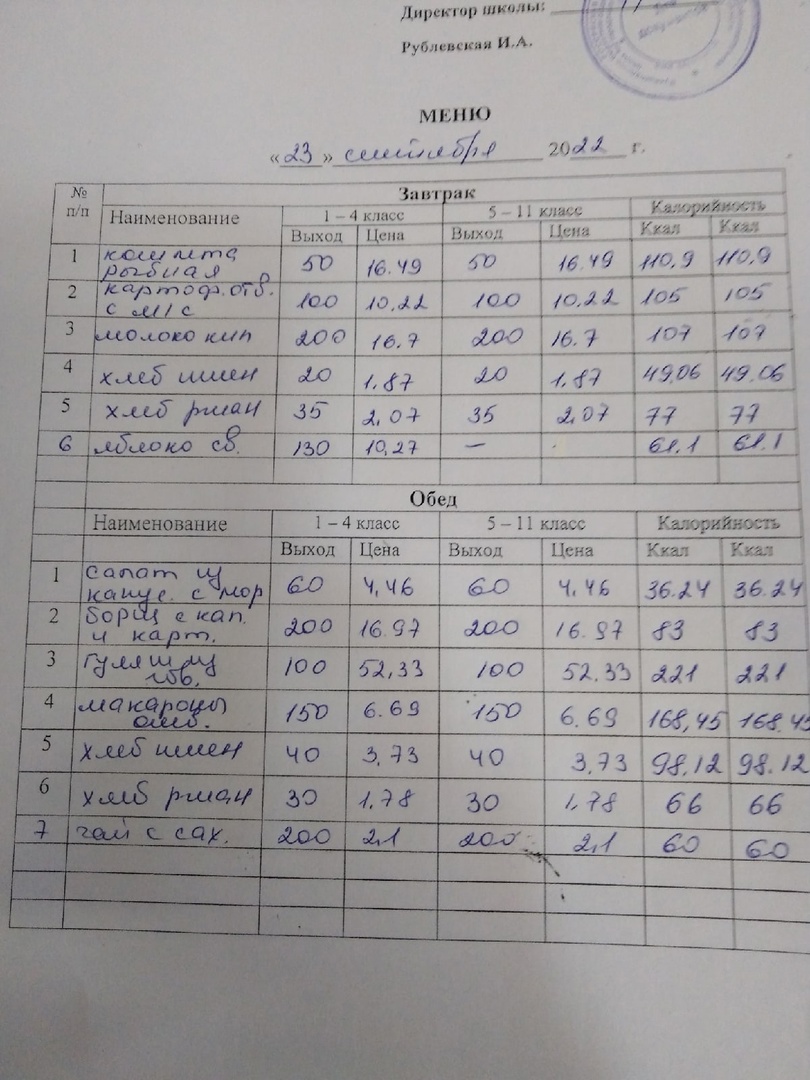 Директор школы:
Рублевская И.А.
МЕНЮ
«23» сентября 2022 г.
№ п/п Завтрак
Наименование 1 – 4 класс 5 – 11 класс Калорийность
Выход Цена Выход Цена Ккал Ккал
1 котлета рыбная 50 16.49 50 16.49 110,9 110,9
2 картоф. отв. с м/с 100 10,22 100 10,22 105 105
3 молоко кип 200 16.7 200 16.7 107 107
4 хлеб пшен 20 1.87 20 1.87 49,06 49.06
5 хлеб ржан 35 2,07 35 2,07 77 77
6 яблоко св. 130 10,27 — 61.1 61.1
Обед
Наименование 1 – 4 класс 5 – 11 класс Калорийность
Выход Цена Выход Цена Ккал Ккал
1 Салат из капус. с мор 60 4,46 60 4,46 36.24 36.24
2 борщ с кап. и карт. 200 16.97 200 16.97 83 83
3 Гуляш из гов. 100 52,33 100 52.33 221 221
4 макароны отв. 150 6.69 150 6.69 168,45 168.45
5 хлеб пшен 40 3,73 40 3,73 98.12 98.12
6 хлеб ржан 30 1,78 30 1,78 66 66
7 чай с сах. 200 2,1 200 2,1 60 60